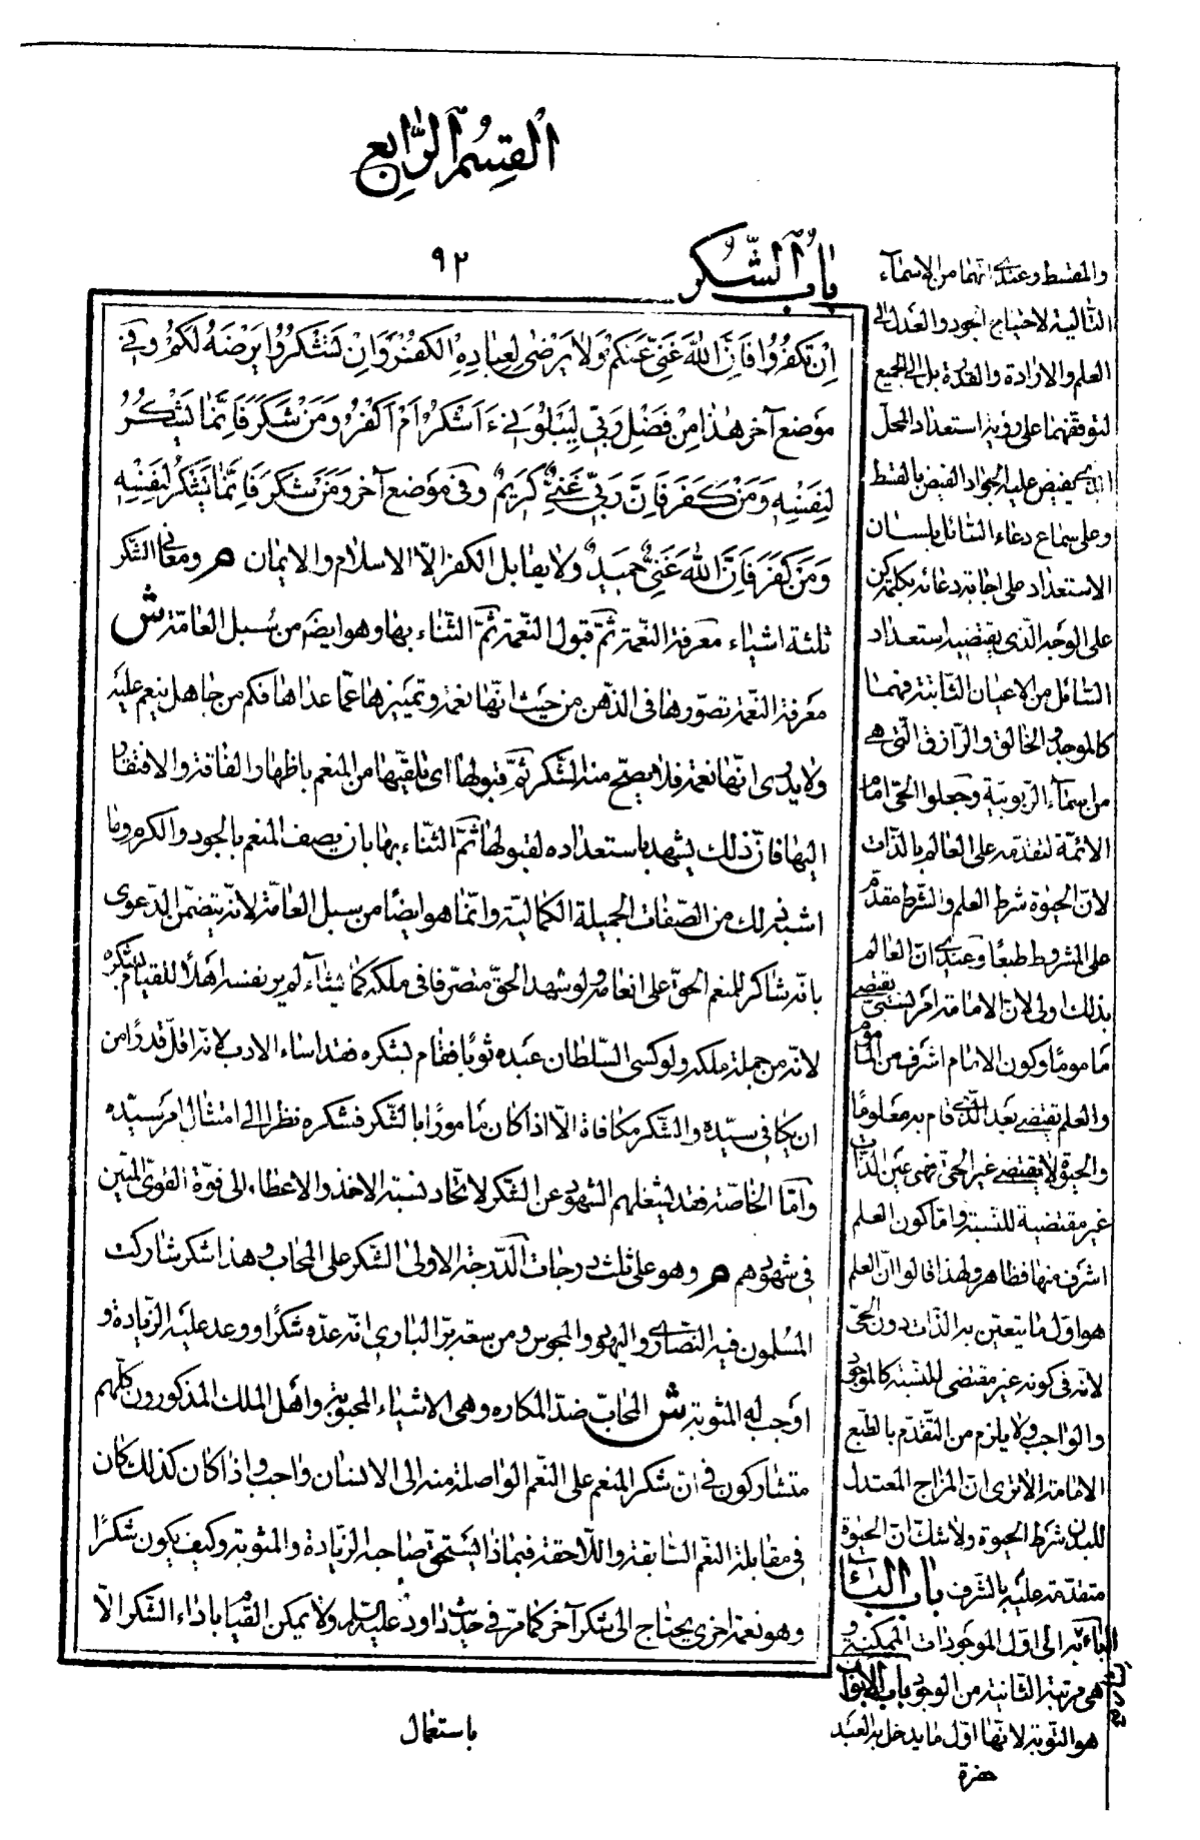 القسم الرابع
باب الشكر
٩٢
ان تكفروا فان الله غنى عنكم ولا يرضى لعباده الكفر وان تشكروا يرضه لكم وفى
موضع آخر هذا من فضل ربى ليبلونى ءاشكر ام اكفر ومن شكر فانما يشكر
لنفسه ومن كفر فان ربى غنى كريم وفى موضع آخر ومن يشكر فانما يشكر لنفسه
ومن كفر فان الله غنى حميد ولا يقابل الكفر الّا الاسلام والايمان م ومعانى الشكر
ثلثة اشياء معرفة النّعمة ثمّ قبول النّعمة ثمّ الثّناء بها وهو ايضا من سبل العامّة ش
معرفة النّعمة تصوّرها فى الذّهن من حيث انّها نعمة وتميزها عمّا عداها فكم من جاهل ينعم عليه
ولا يدرى انّها نعمة فلا يصحّ منه الشكر ثمّ قبولها اى تلقّيها من المنعم باظهار الفاقة والافتقار
اليها فانّ ذلك يشهد باستعداده لقبولها ثمّ الثّناء بها بان يصف المنعم بالجود والكرم وما
اشبه ذلك من الصّفات الجميلة الكماليّة وانّما هو ايضًا من سبل العامّة لانّه يتضمّن الدّعوى
بانّه شاكر للمنعم الحقّ على انعامه ولو شهد الحقّ متصرّفا فى ملكه كما يشاء لم ير نفسه اهلًا للقيام بشكره
لانّه من جملة ملكه ولو كسى السّلطان عبده ثوبًا فقام لشكره فقد اساء الادب لانّه اقلّ قدرًا من
ان يكافى سيّده والشّكر مكافاة الّا اذا كان مأمورًا بالشّكر فشكره نظرا الى امتثال امر سيّده
وامّا الخاصّة فقد يشغلهم الشهود عن الشّكر لاتّحاد نسبة الاخذ والاعطاء الى قوّة القوىّ المتين
فى شهودهم م وهو على ثلث درجات الدّرجة الاولى الشّكر على المحاب وهذا شكر شاركت
المسلمون فيه النصارى واليهود والمجوس ومن سعة برّ البارى انّه عدّه شكرًا ووعد عليه الزّيادة و
اوجب له المثوبة ش المحابّ ضدّ المكاره وهى الاشياء المحبوبة واهل الملل المذكورون كلّهم
متشاركون فى انّ شكر المنعم على النّعم الواصلة منه الى الانسان واجب واذا كان كذلك كان
فى مقابلة النّعم السّابقة واللّاحقة فبماذا يستحقّ صاحبه الزّيادة والمثوبة وكيف يكون شكرًا
وهو نعمة اخرى يحتاج الى شكر آخر كما مرّ فى حديث داود عليه السلم ولا يمكن القيام باداء الشّكر الّا
باستعمال
والمقسط وعندى انّهما من الاسماء
الثّالثة لاحتياج الجود والعدل الى
العلم والارادة والقدرة بل الى الجميع
لتوقّفهما على رؤية استعداد المحلّ
الّذى يفيض عليه الجواد الفيض بالقسط
وعلى سماع دعاء السّائل بلسان
الاستعداد وعلى اجابة دعائه بكلمة كن
على الوجه الّذى يقتضيه استعداد
السّائل من الاعيان الثّابتة فهما
كالموجد والخالق والرّازق الّتى هى
من اسماء الرّبوبيّة وجعلوا الحىّ امام
الائمّة لتقدّمه على العالم بالذّات
لانّ الحيوة شرط العلم والشّرط مقدّم
على المشروط طبعًا وعندى انّ العالم
بذلك اولى لانّ الامامة امر نسبىّ يقتضى
مأمومًا وكون الامام اشرف من المأموم
والعلم يقتضى بعد الّذى قام به معلومًا
والحيوة لا يقتضى غير الحىّ فهى عين الذّات
غير مقتضية للنّسبة وامّا كون العلم
اشرف منها فظاهر ولهذا قالوا انّ العلم
هو اوّل ما يتعيّن به الذّات دون الحىّ
لانّه فى كونه غير مقتضى للنّسبة كالموجود
والواجب ولا يلزم من التّقدّم بالطّبع
الامامة الا ترى انّ المزاج المعتدل
للبدن شرط الحيوة ولا شكّ انّ الحيوة
متقدّمة عليه بالشّرف باب الباء
الباء به الى اوّل الموجودات الممكنة و
هى مرتبة الثّانية من الوجود باب الابواب
هو التّوبة لانّها اوّل ما يدخل به العبد